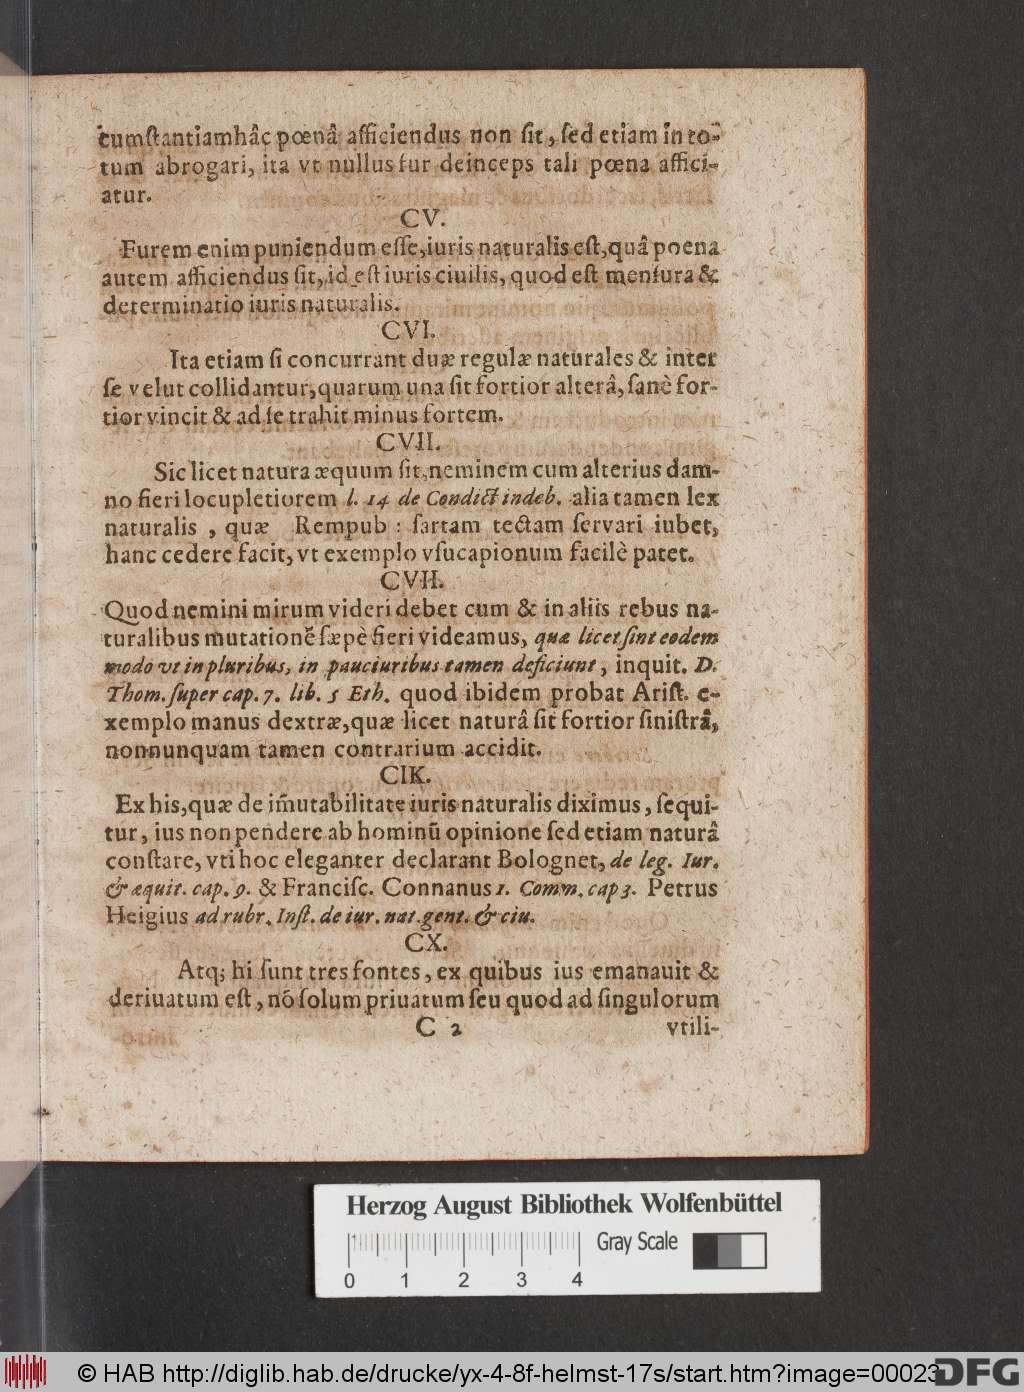 cumſtantiam hâc pœnâ afficiendus non ſit, ſed etiam in to-
tum abrogari, ita vt nullus fur deinceps tali pœna affici-
atur.
CV.
Furem enim puniendum eſſe, iuris naturalis eſt, quâ poena
autem afficiendus ſit, id eſt iuris ciuilis, quod eſt menſura &
determinatio iuris naturalis.
CVI.
Ita etiam ſi concurrant duæ regulæ naturales & inter
ſe velut collidantur, quarum una ſit fortior alterâ, ſanè for-
tior vincit & ad ſe trahit minus fortem.
CVII.
Sic licet natura æquum ſit, neminem cum alterius dam-
no fieri locupletiorem l. 14 de Condict indeb. alia tamen lex
naturalis , quæ Rempub : ſartam tectam ſervari iubet,
hanc cedere facit, vt exemplo vſucapionum facilè patet.
CVII.
Quod nemini mirum videri debet cum & in aliis rebus na-
turalibus mutationē ſæpè fieri videamus, quæ licet ſint eodem
modo vt in pluribus, in pauciuribus tamen deficiunt, inquit. D.
Thom. ſuper cap. 7. lib. 5 Eth. quod ibidem probat Ariſt. e-
xemplo manus dextræ, quæ licet naturâ ſit fortior ſiniſtrâ,
nonnunquam tamen contrarium accidit.
CIK.
Ex his, quæ de im̄utabilitate iuris naturalis diximus, ſequi-
tur, ius non pendere ab hominū opinione ſed etiam naturâ
conſtare, vti hoc eleganter declarant Bolognet, de leg. Iur.
& æquit. cap. 9. & Franciſc. Connanus 1. Comm. cap 3. Petrus
Heigius ad rubr. Inſt. de iur. nat. gent. & ciu.
CX.
Atq; hi ſunt tres fontes, ex quibus ius emanauit &
deriuatum eſt, nō ſolum priuatum ſeu quod ad ſingulorum
C 2 vtili-
Herzog August Bibliothek Wolfenbüttel
Gray Scale
0 1 2 3 4
© HAB http://diglib.hab.de/drucke/yx-4-8f-helmst-17s/start.htm?image=00023
DFG